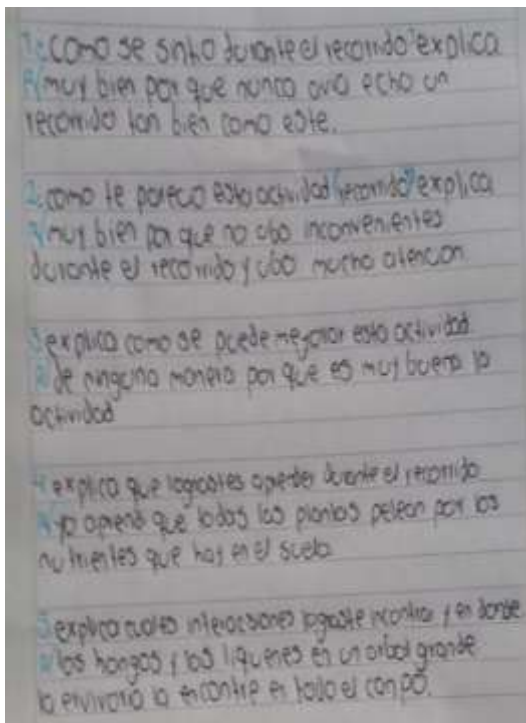 1¿como se sintio durante el recorrido? explica
R/ muy bien por que nunca avia echo un
recorrido tan bien como este.
2¿como te parecio esta actividad "recorrido" explica
R/ muy bien por que no ubo inconvenientes
durante el recorrido y ubo mucha atencion
3 explica como se puede mejorar esta actividad
R/ de ninguna manera por que es muy buena la
actividad
4 explica que lograstes aprender durante el recorrido
R/ yo aprendi que todas las plantas pelean por los
nutrientes que hay en el suelo
5 explica cuales interacsones lograste incontrar y en donde
R/ los hongos y los liquenes en un arbol grande
la encontre en todo el campo.